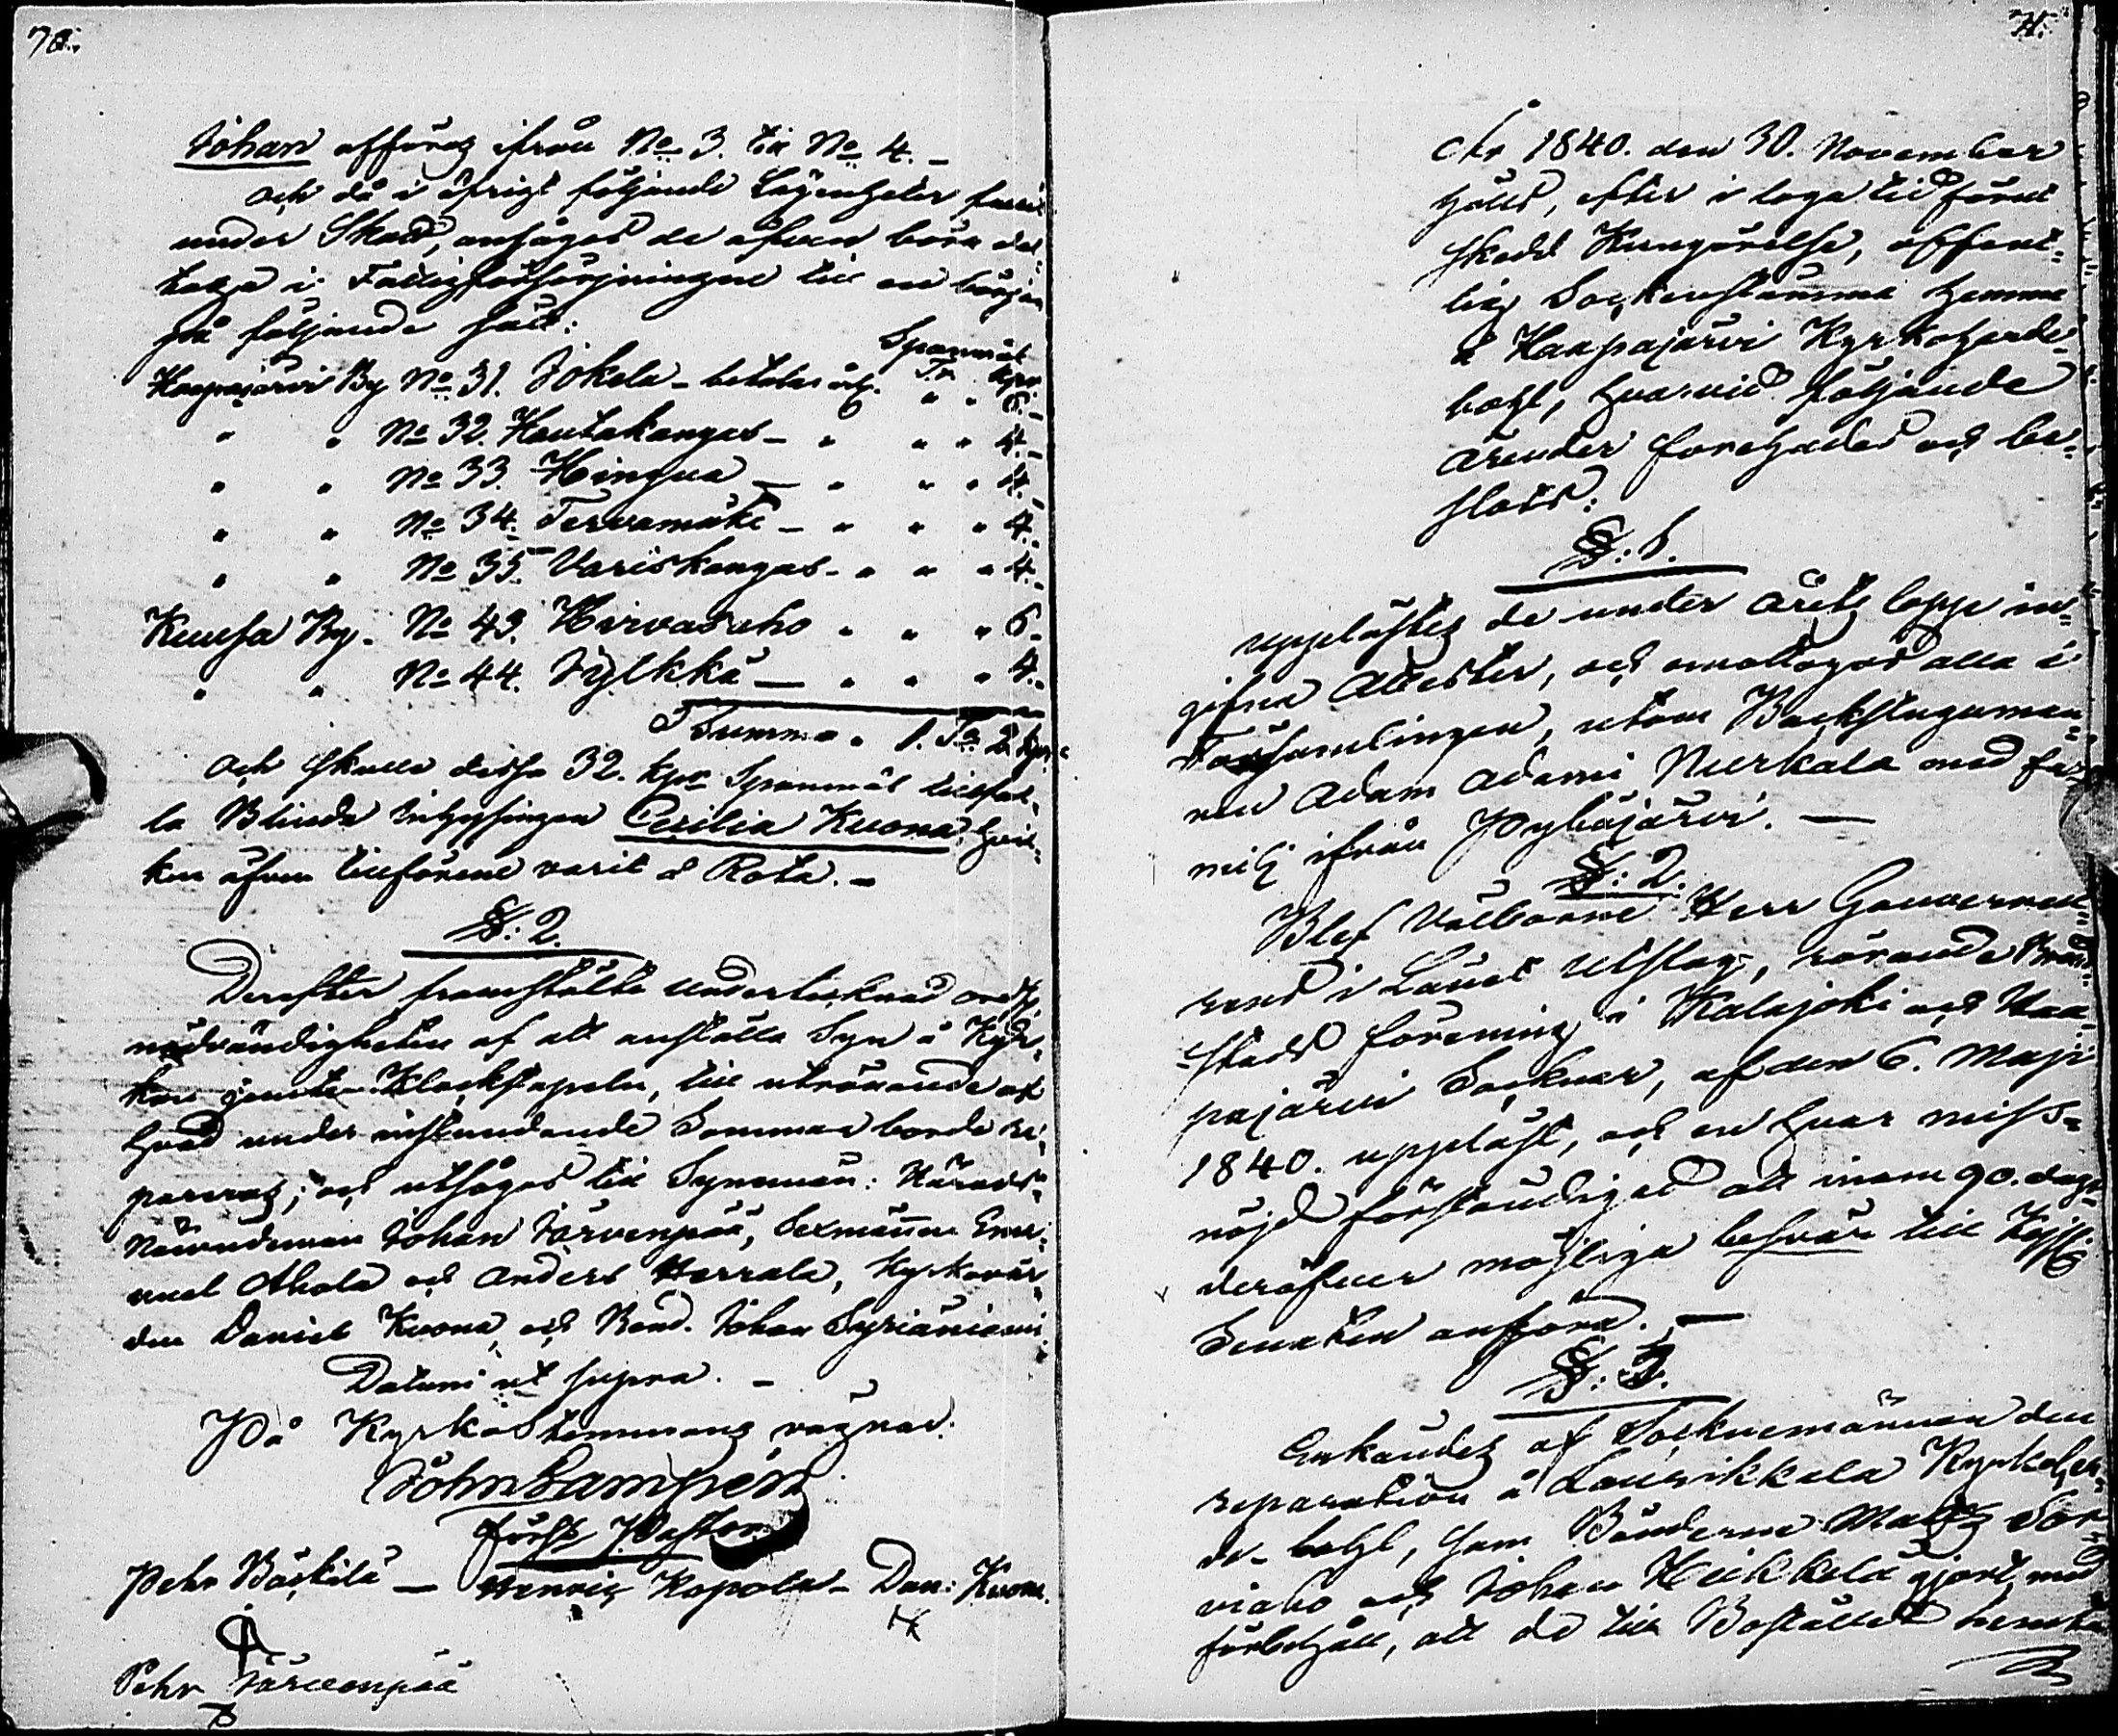 70.
Johan afföres ifrån No 3. till No 4. –
och då i öfrigt följande Lägenheter
under Skatt, ansågos de äfven böra del-
taga i Fattigförsörjningen till en början
på följande sätt:
Spannmål
Haapajärvi By No 31. Jokela – betalar årl. Tr. kpr. 6. –
" " No 32. Hautakangas – " " " 4. –
" " No 33. Hingua – " " " 4. –
" " No 34. Tervamäki – " " " 4. –
" " No 35. Variskangas – " " " 4. –
Kuusa By. No 43. Hirvasaho " " " 6. –
" " No 44. Jylkkä – " " " 4. –
Summa. 1. Ta 2 kpr
och skulle dessa 32. kpr Spannmål tillfal-
la Blinda Inhysingen Cecilia Kuona, hvil-
ken äfven tillförene varit å Rota. –
§: 2.
Derefter framstälte undertecknad
nödvändigheten af att anställa Syn å Kyr-
kan jemte Klockstapeln, till utrönande af
hvad under instundande Sommar borde re-
pareras; och utsågos till Synemän: Härads-
Nämndeman Johan Järvenpää, Sexmännen Ema-
nuel Ahola och Anders Harrala, Kyrkovär-
den Daniel Kuona, och Bond. Johan Syriäniemi.
Datum ut supra. –
På Kyrkostemmans vägnar:
John Lampén
Förste Pastor
Pehr Bäckilä – Henric Kapola – Dan: Kuona.
Pehr Järvenpää
71.
År 1840. den 30. November
hölls, efter i laga tid förut
skedd Kungörelse, offent-
lig Sockenstämma hemma
å Haapajärvi Kyrkoherde-
bohl, hvarvid följande
ärender forehades och be-
slöts:
§: 1.
Upplästes de under årets lopp in-
gifna Attester, och emottogos alla i
Församlingen, utom Backstuguman-
nen Adam Adami Nurkala med fa-
milj ifrån Pyhäjärvi. –
§: 2.
Blef Välborne Herr Gouverneu-
rens i Länet Utslag, rörande Brand-
stods förening i Kalajoki och Haa-
pajärvi Socknar, af den 6. Maji
1840. uppläst, och en hvar miss-
nöjd förständigad att inom 90. dagar
deröfver möjliga besvär till Kejs.
Senaten anföra. –
§: 3.
Erkändes af Sockenemännen den
reparation å Laurikkala Kyrkoher-
de-bohl, som Bönderne Matts Sor-
viaho och Johan Heikkilä gjort, med
förbehåll, att de till Bostället